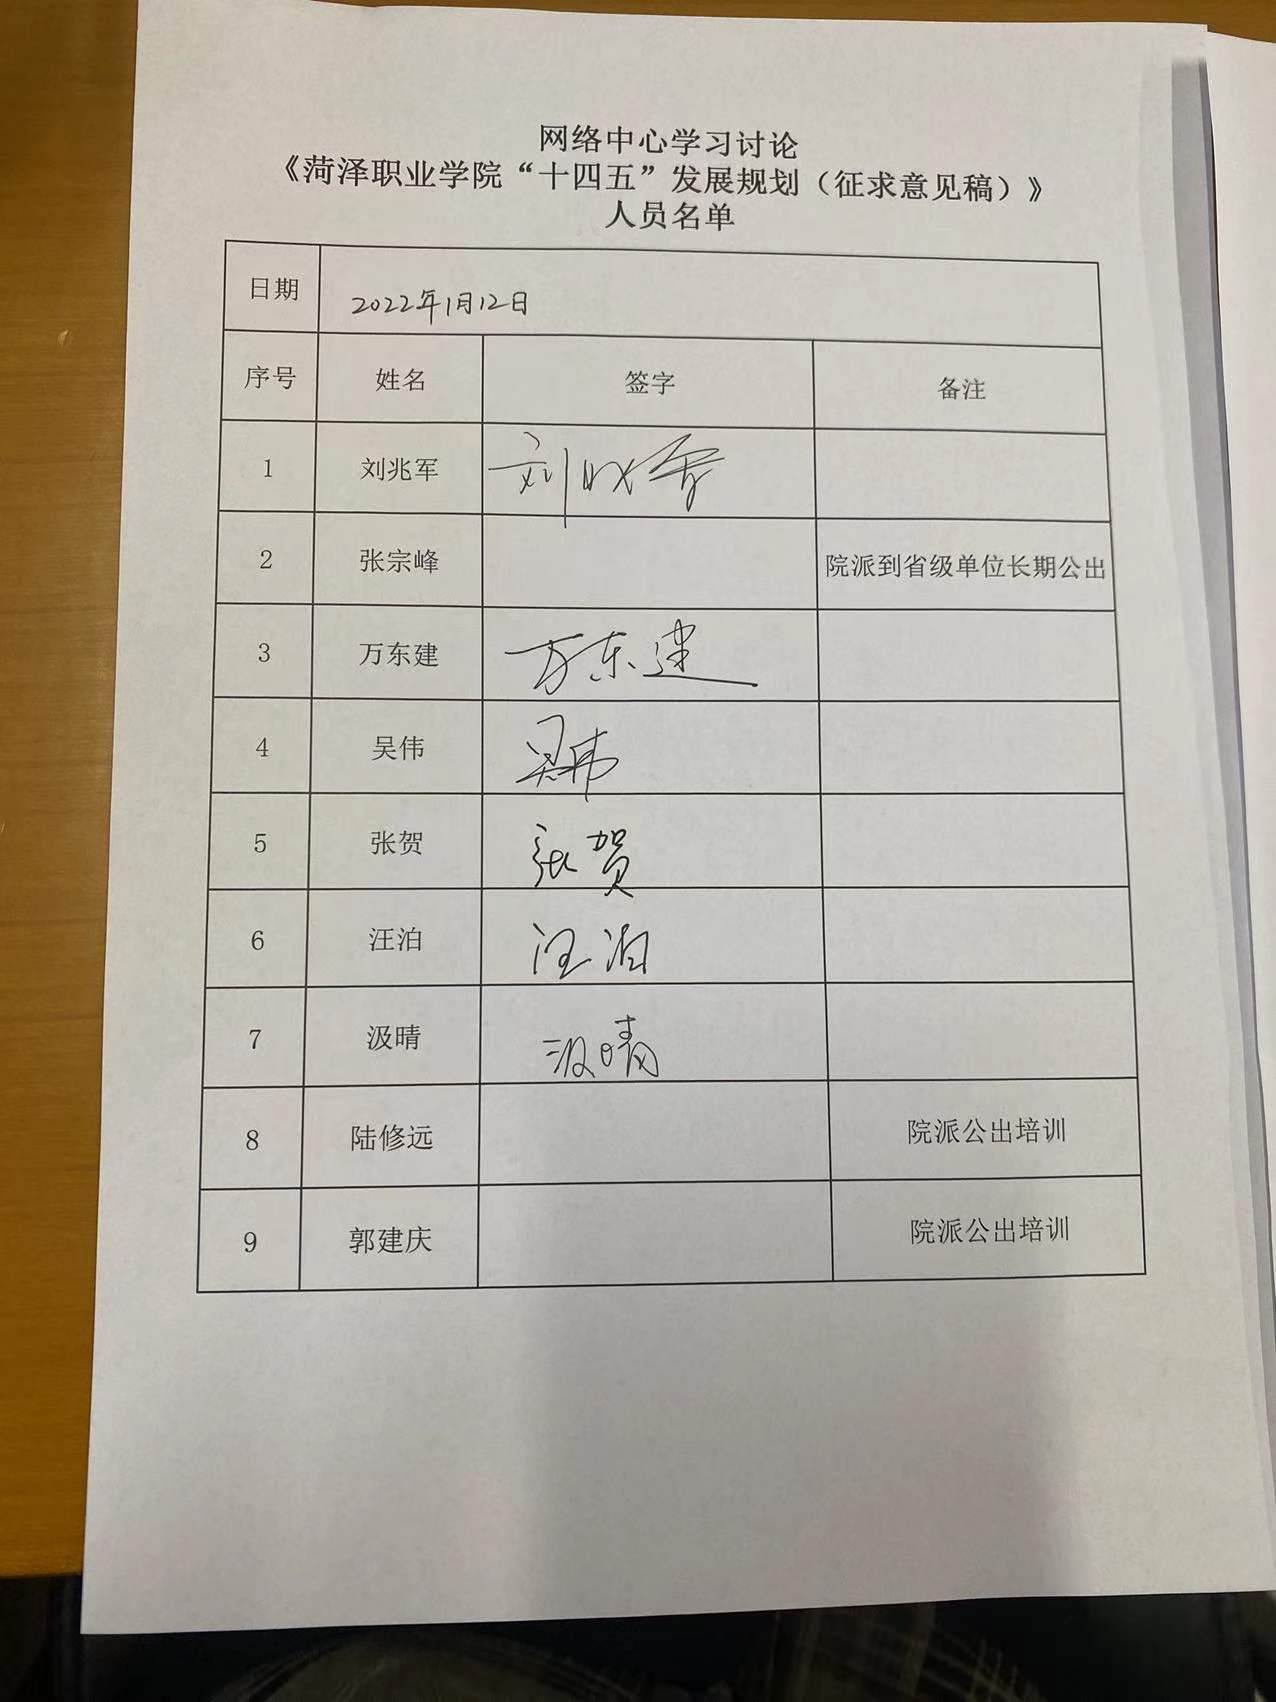 网络中心学习讨论
《菏泽职业学院“十四五”发展规划（征求意见稿）》
人员名单
日期 2022年1月12日
序号 姓名 签字 备注
1 刘兆军 刘兆军
2 张宗峰 院派到省级单位长期公出
3 万东建 万东建
4 吴伟 吴伟
5 张贺 张贺
6 汪泊 汪泊
7 汲晴 汲晴
8 陆修远 院派公出培训
9 郭建庆 院派公出培训